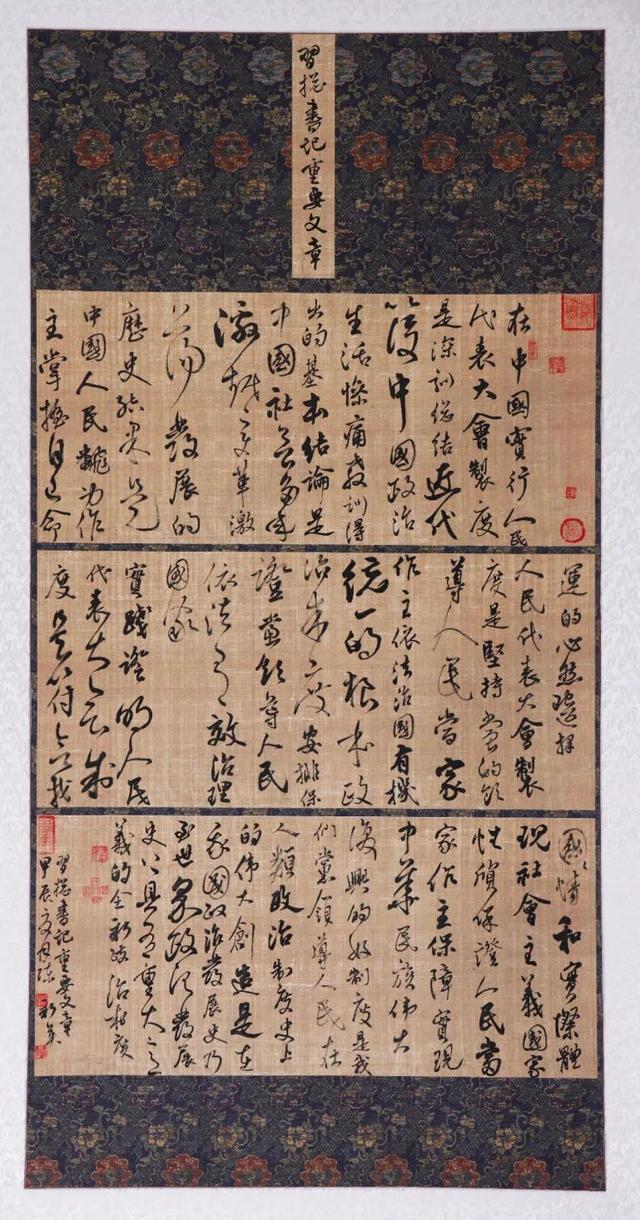 習總書記重要文章
在中國實行人民
代表大會製度
是深訓總结近代
以後中國政治
生活慘痛教訓得
出的基本結論是
中國社會百多年
激越變革激
蕩發展的
歷史結果是
中國人民翻身作
主掌握自己命
運的必然選择
人民代表大會製
度是堅持黨的領
導人民當家
作主依法治國有機
統一的根本政
治制度安排保
證黨領導人民
依法有效治理
國家
實踐證明人民
代表大会制
度是符合我
國國情和實際體
現社會主義國家
性質保證人民當
家作主保障實現
中華民族偉大
復興的好制度是我
們黨領導人民在
人類政治制度史上
的偉大創造是在
我國政治發展史乃
至世界政治發展
史上具有重大意
義的全新政治制度
習總書記重要文章
甲辰夏月陳新